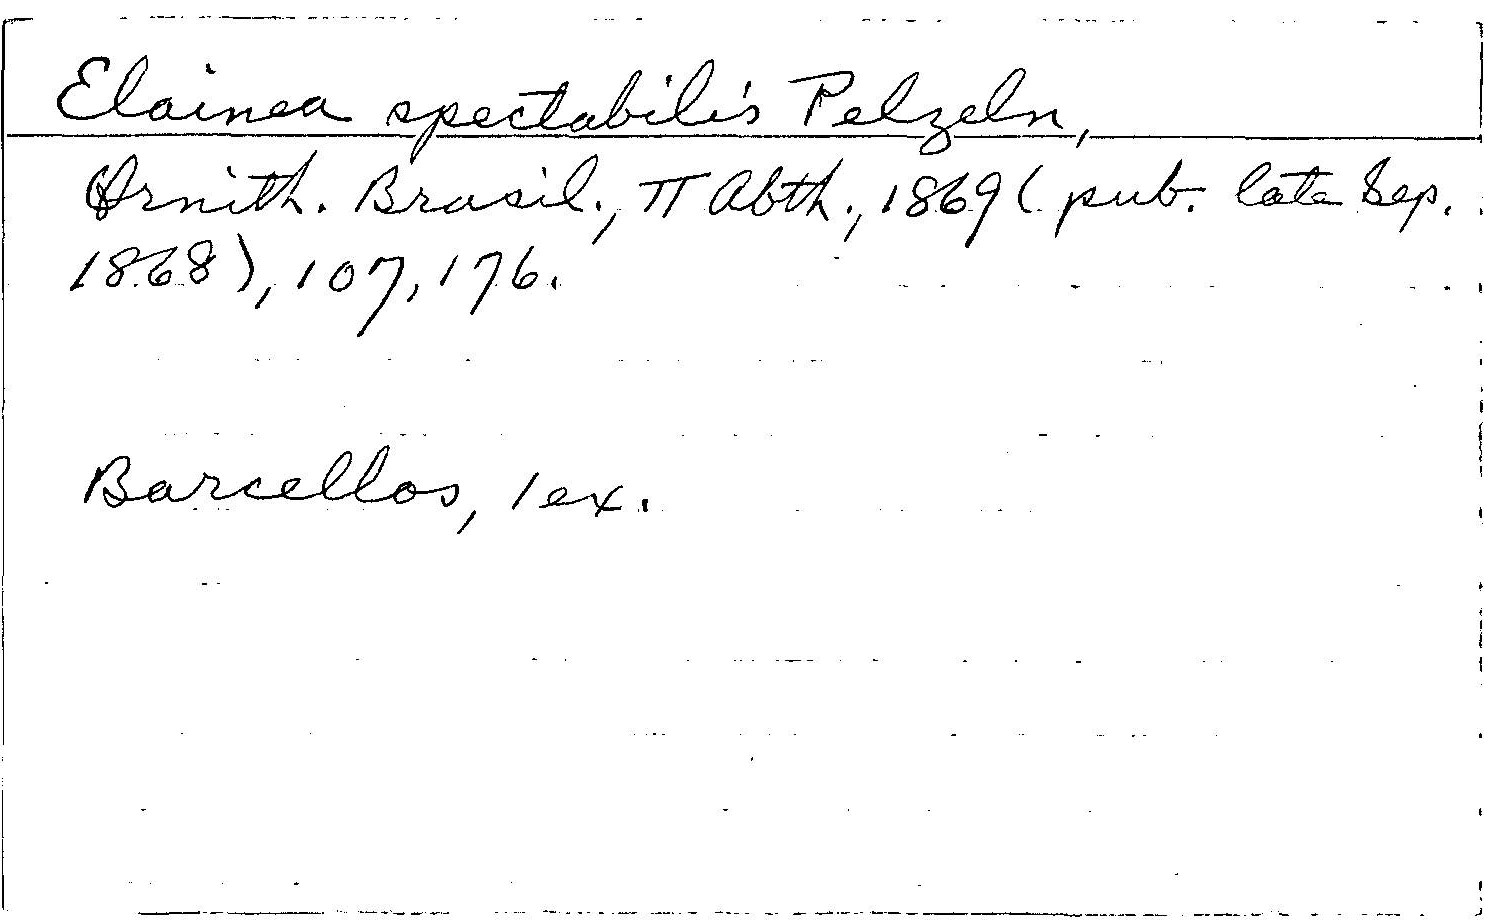 Elainea spectabilis Pelzeln,
Ornith. Brasil., II Abth., 1869 (pub. late Sep.
1868), 107, 176.
Barcellos, 1 ex.